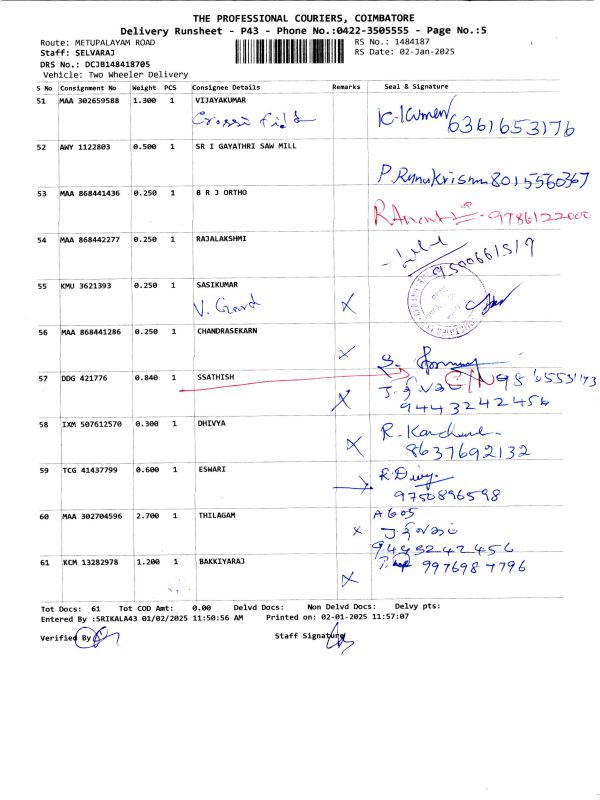 THE PROFESSIONAL COURIERS, COIMBATORE
Delivery Runsheet - P43 - Phone No.:0422-3505555 - Page No.:5
Route: METUPALAYAM ROAD RS No.: 1484187
Staff: SELVARAJ RS Date: 02-Jan-2025
DRS No.: DCJB148418705
Vehicle: Two Wheeler Delivery
S No Consignment No Weight PCS Consignee Details Remarks Seal & Signature
51 MAA 302659588 1.300 1 VIJAYAKUMAR
6361653176
52 AWY 1122803 0.500 1 SR I GAYATHRI SAW MILL
8015560367
53 MAA 868441436 0.250 1 B R J ORTHO
54 MAA 868442277 0.250 1 RAJALAKSHMI
9500661519
55 KMU 3621393 0.250 1 SASIKUMAR
V. Grand X
56 MAA 868441286 0.250 1 CHANDRASEKARN
X
57 DDG 421776 0.840 1 SSATHISH
X 9443242456
58 IXM 507612570 0.300 1 DHIVYA
X 8637692132
59 TCG 41437799 0.600 1 ESWARI
9750896598
60 MAA 302704596 2.700 1 THILAGAM A605
X
9443242456
61 KCM 13282978 1.200 1 BAKKIYARAJ 9976987796
X
Tot Docs: 61 Tot COD Amt: 0.00 Delvd Docs: Non Delvd Docs: Delvy pts:
Entered By :SRIKALA43 01/02/2025 11:50:56 AM Printed on: 02-01-2025 11:57:07
Verified By Staff Signature